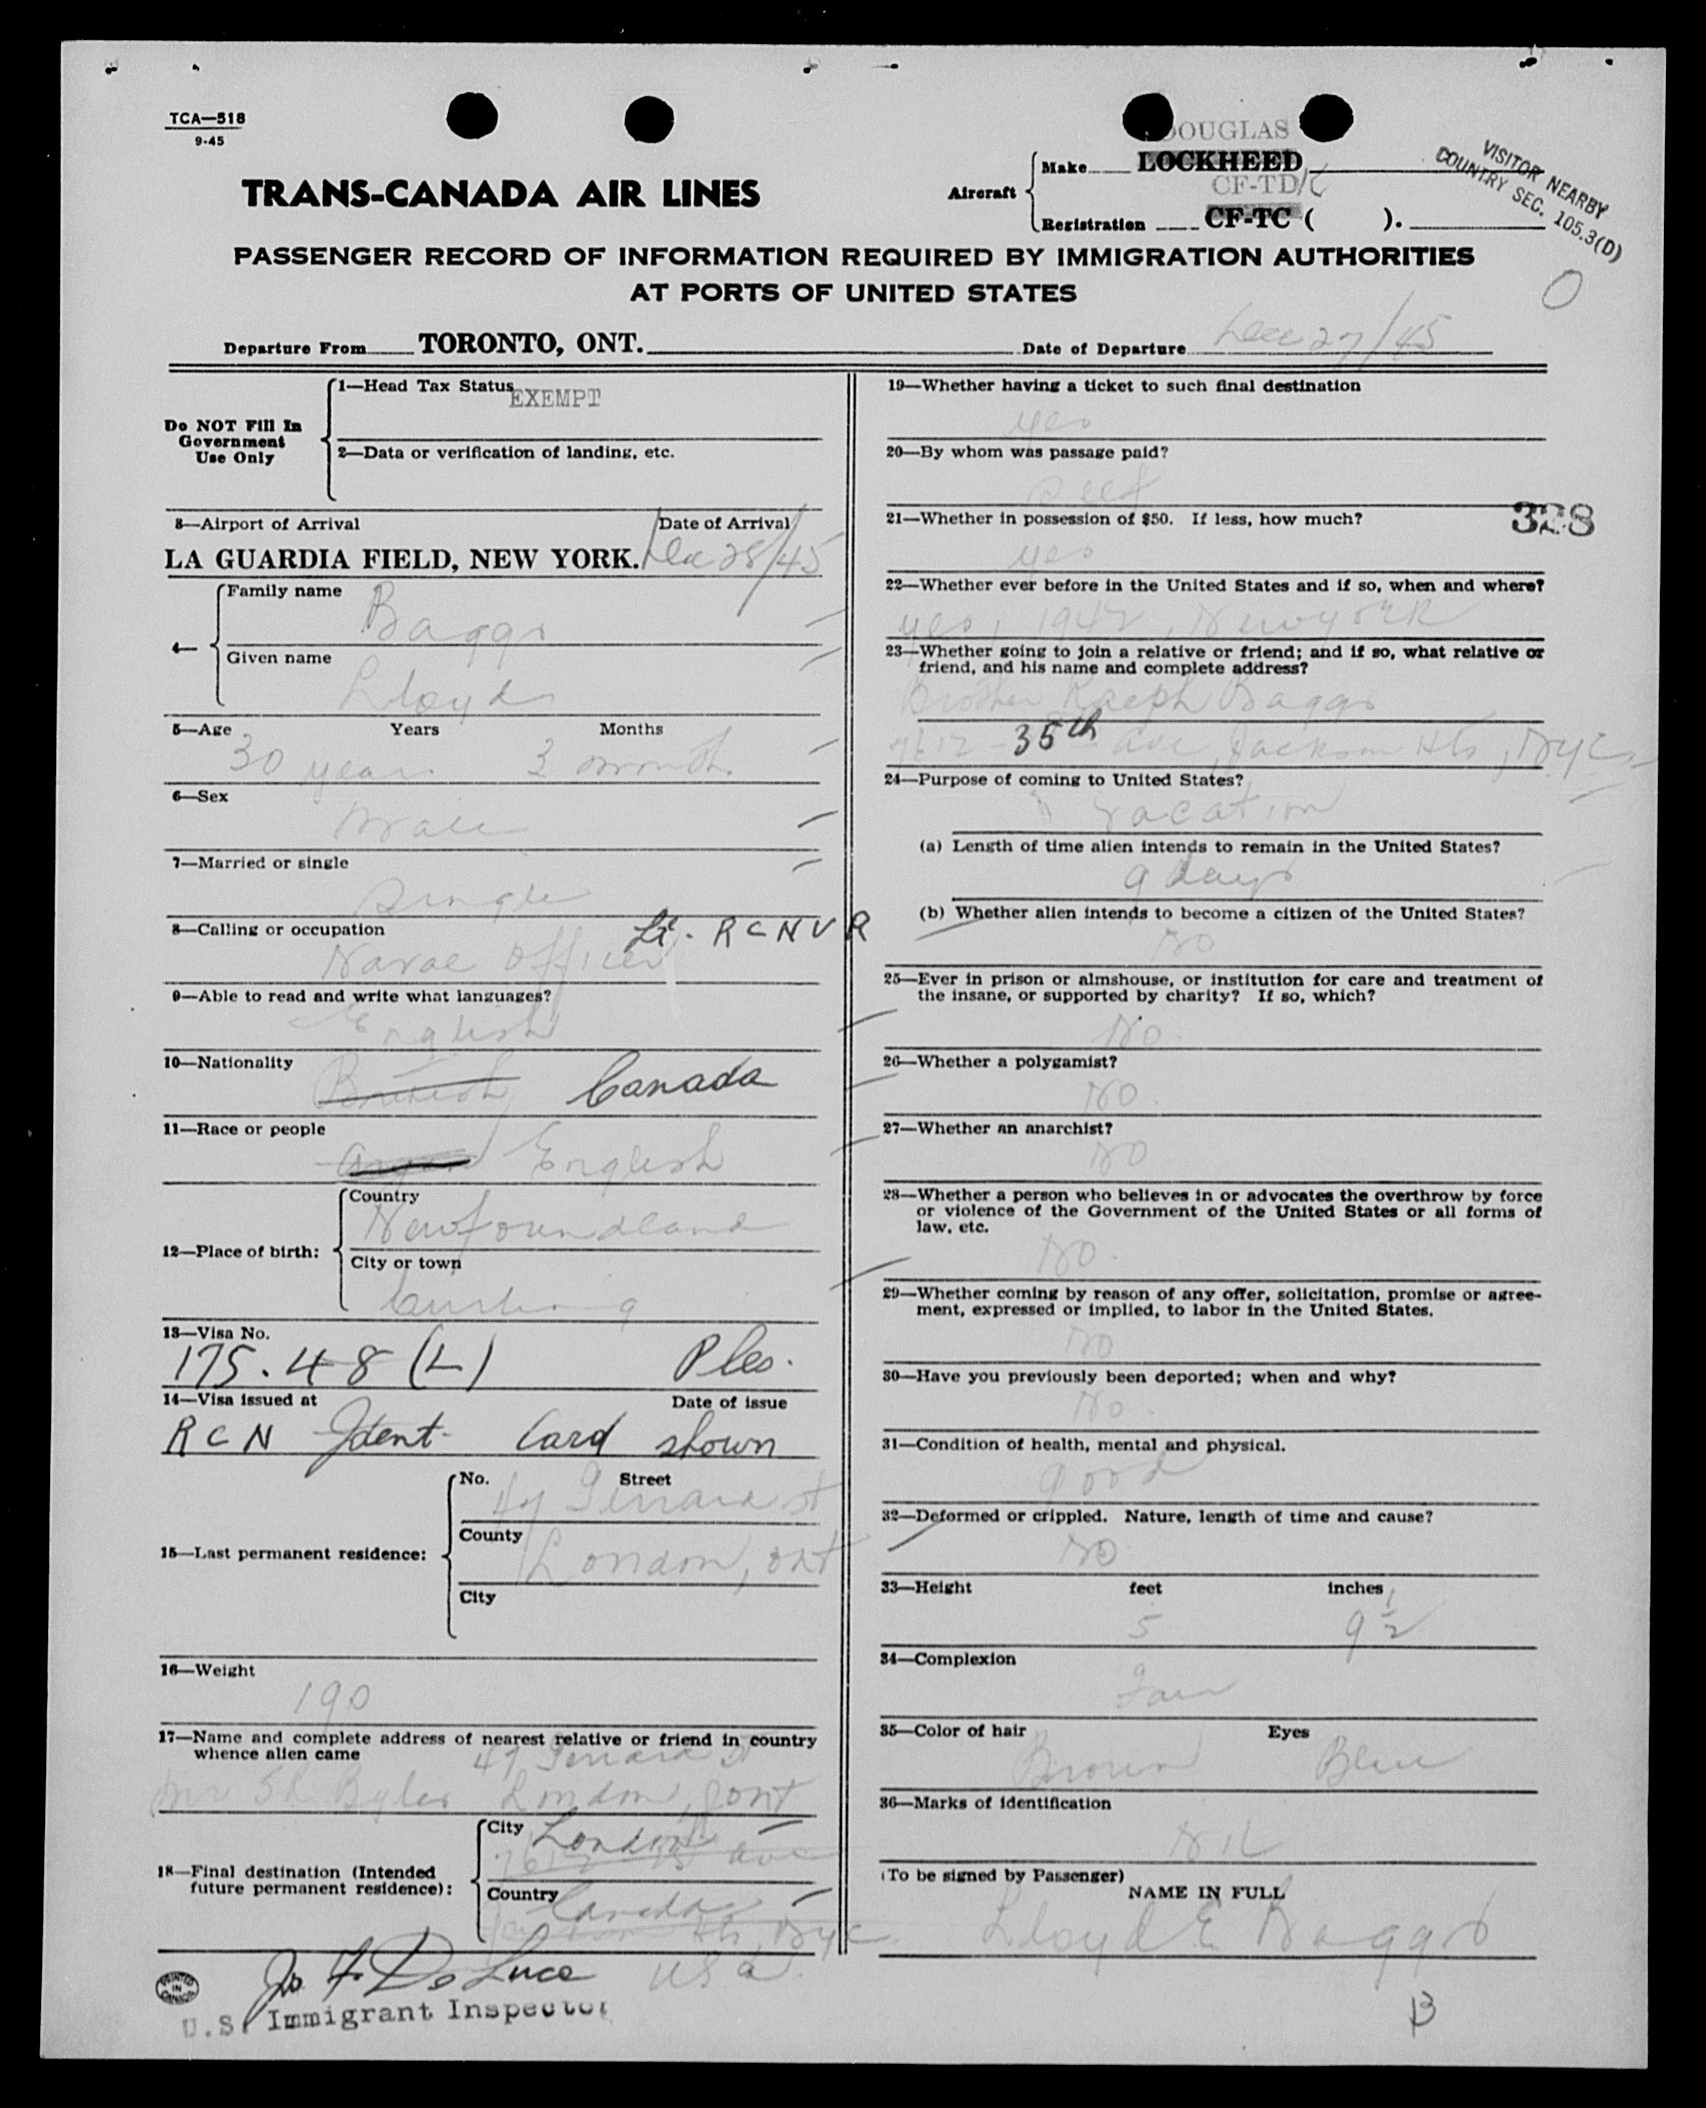 TCA—518
9-45
DOUGLAS
TRANS-CANADA AIR LINES
Aircraft
Make LOCKHEED
CF-TD/C
Registration CF-TC ( ).
VISITOR NEARBY
COUNTRY SEC. 105.3(D)
PASSENGER RECORD OF INFORMATION REQUIRED BY IMMIGRATION AUTHORITIES
AT PORTS OF UNITED STATES
O
Departure From TORONTO, ONT. Date of Departure Dec 27/45
Do NOT Fill In
Government
Use Only
1—Head Tax Status EXEMPT
2—Data or verification of landing, etc.
3—Airport of Arrival Date of Arrival
LA GUARDIA FIELD, NEW YORK. Dec 28/45
4—
Family name
Baggs
Given name
Lloyd
5—Age Years Months
30 years 3 months
6—Sex
Male
7—Married or single
Single
8—Calling or occupation Lt. RCNVR
Naval Officer
9—Able to read and write what languages?
English
10—Nationality
British Canada
11—Race or people
English
12—Place of birth:
Country
Newfoundland
City or town
Curling
13—Visa No.
175.48 (L) Ples.
14—Visa issued at Date of issue
RCN Ident. Card shown
15—Last permanent residence:
No. Street
47 Gerrard St
County
London, Ont
City
16—Weight
190
17—Name and complete address of nearest relative or friend in country
whence alien came 47 Gerrard St
London, Ont
18—Final destination (Intended
future permanent residence):
City London
7612 35 ave
Country Canada
Jackson Hts, NYC
USA
Jo. F. De Luca
U.S. Immigrant Inspector
PRINTED IN CANADA
19—Whether having a ticket to such final destination
yes
20—By whom was passage paid?
Self
328
21—Whether in possession of $50. If less, how much?
yes
22—Whether ever before in the United States and if so, when and where?
yes, 1942, New York
23—Whether going to join a relative or friend; and if so, what relative or
friend, and his name and complete address?
Brother Ralph Baggs
7612 - 35th ave, Jackson Hts, NYC
24—Purpose of coming to United States?
Vacation
(a) Length of time alien intends to remain in the United States?
9 days
(b) Whether alien intends to become a citizen of the United States?
No
25—Ever in prison or almshouse, or institution for care and treatment of
the insane, or supported by charity? If so, which?
No.
26—Whether a polygamist?
No.
27—Whether an anarchist?
No
28—Whether a person who believes in or advocates the overthrow by force
or violence of the Government of the United States or all forms of
law, etc.
No.
29—Whether coming by reason of any offer, solicitation, promise or agree-
ment, expressed or implied, to labor in the United States.
No
30—Have you previously been deported; when and why?
No.
31—Condition of health, mental and physical.
good
32—Deformed or crippled. Nature, length of time and cause?
No
33—Height feet inches
5 9 1/2
34—Complexion
Fair
35—Color of hair Eyes
Brown Blue
36—Marks of identification
Nil
(To be signed by Passenger)
NAME IN FULL
Lloyd E Baggs
B